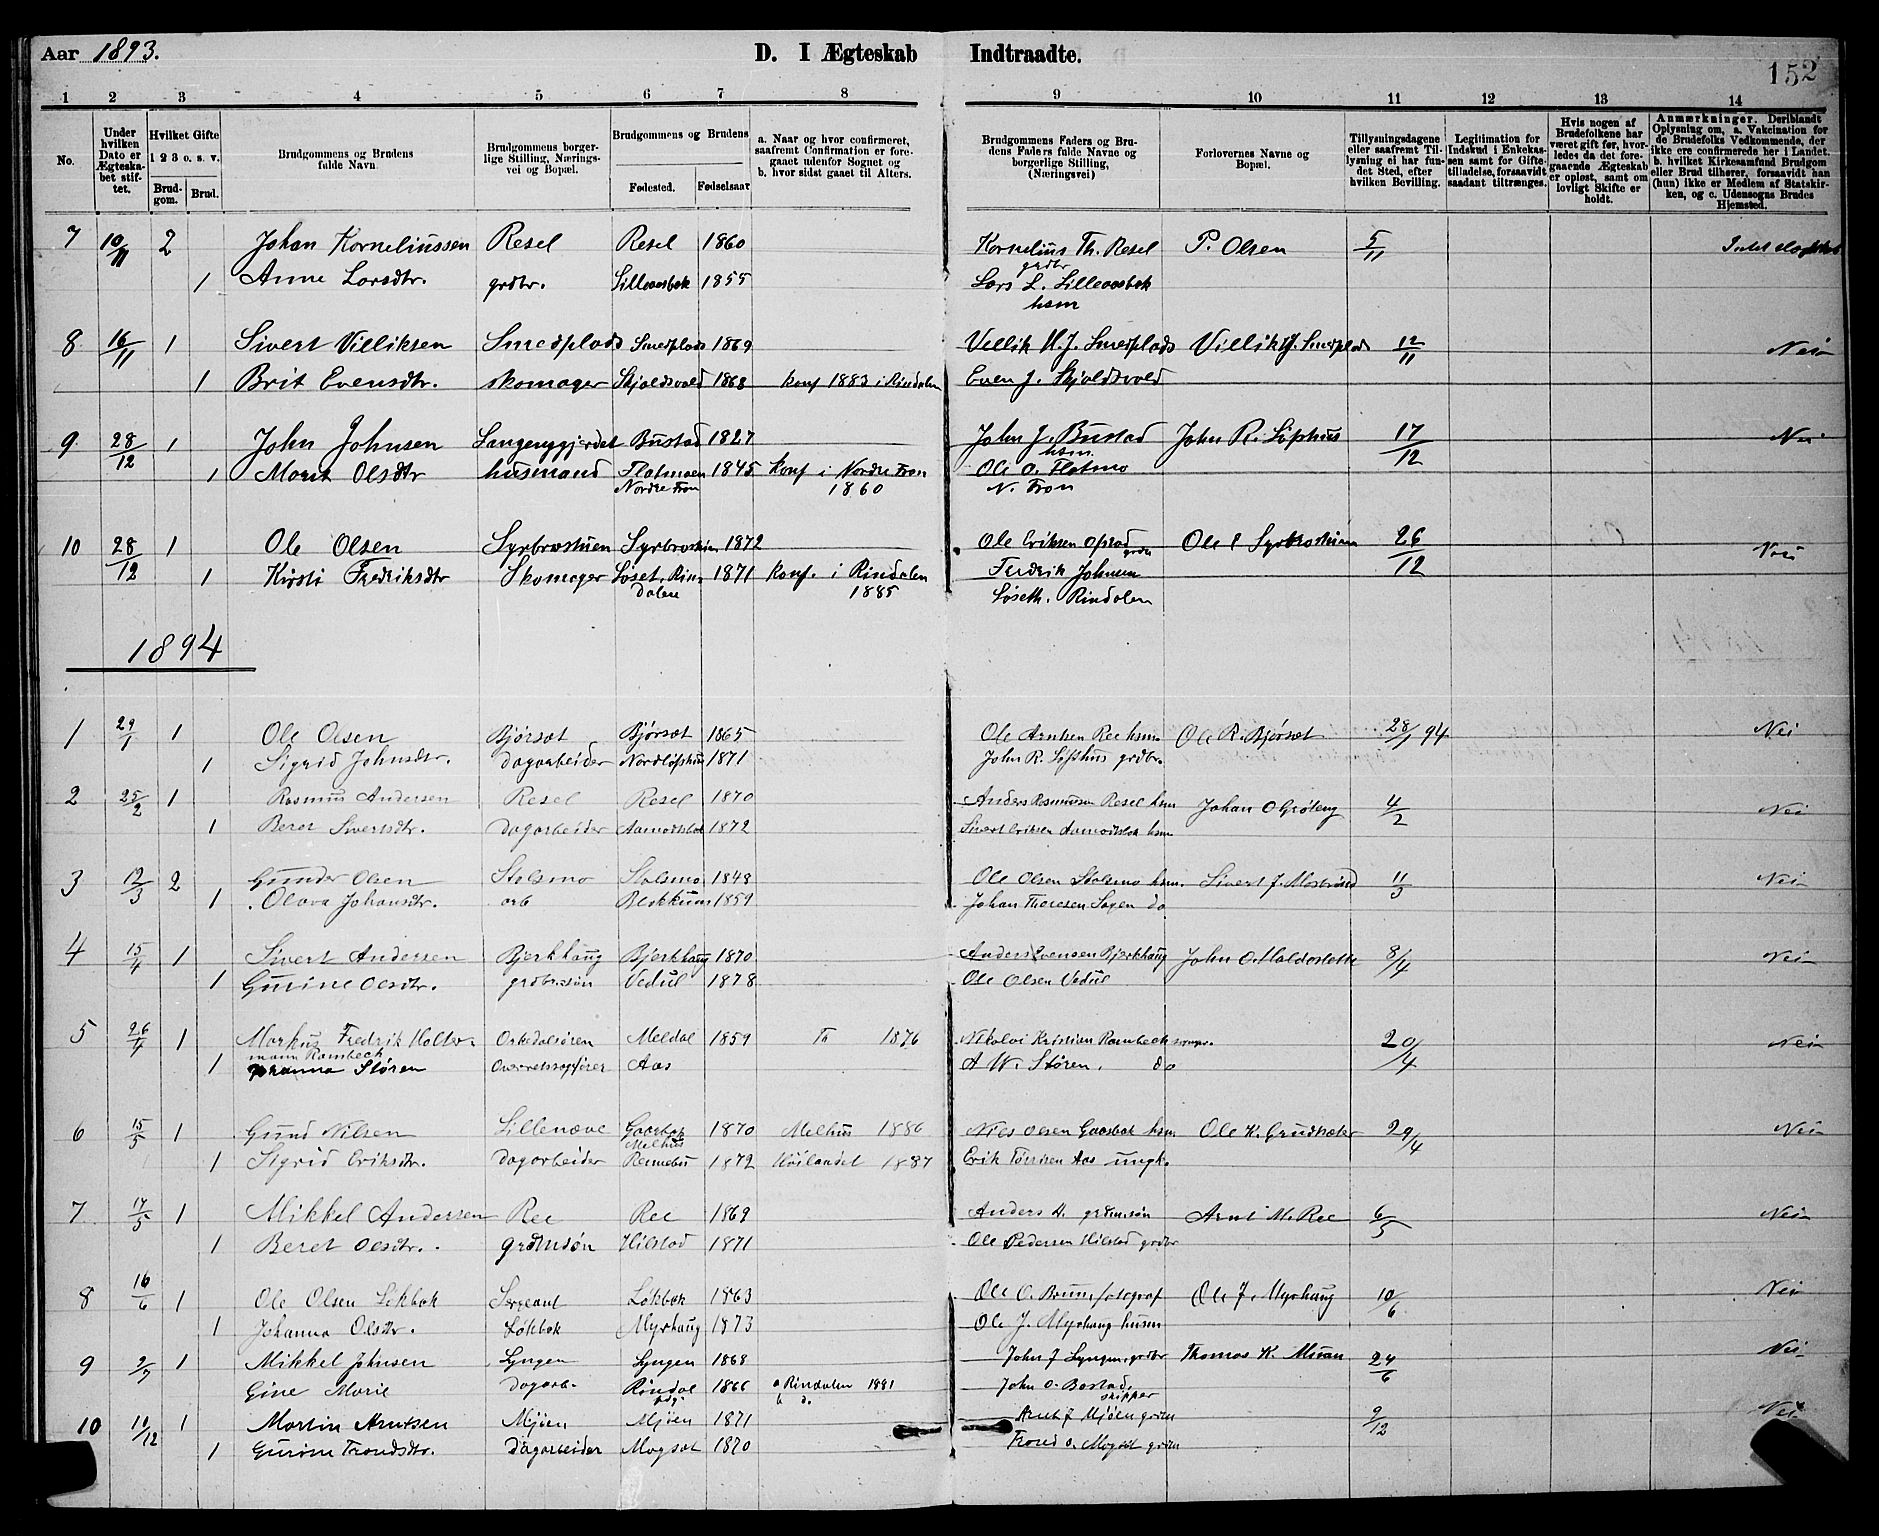 Aar 1893.
D. I Ægteskab Indtraadte.
152
1 2 3 4 5 6 7 8 9 10 11 12 13 14
No.
Under hvilken Dato er Ægteskabet stiftet.
Hvilket Gifte 1 2 3 o. s. v.
Brudgom. Brud.
Brudgommens og Brudens fulde Navn.
Brudgommens borgerlige Stilling, Næringsvei og Bopæl.
Brudgommens og Brudens
Fødested. Fødselsaar
a. Naar og hvor confirmeret, saafremt Confirmation er foregaaet udenfor Sognet og b. hvor sidst gaaet til Alters.
Brudgommens Faders og Brudens Faders fulde Navne og borgerlige Stilling, (Næringsvei)
Forlovernes Navne og Bopæl.
Tillysningsdagene eller saafremt Tillysning ei har fundet Sted, efter hvilken Bevilling.
Legitimation for Indskud i Enkekassen samt for Giftetilladelse, forsaavidt saadant tiltrænges.
Hvis nogen af Brudefolkene har været gift før, hvorledes da det foregaaende Ægteskab er opløst, samt om lovligt Skifte er holdt.
Anmærkninger. Deriblandt Oplysning om, a. Vakcination for de Brudefolks Vedkommende, der ikke ere confirmerede her i Landet. b. hvilket Kirkesamfund Brudgom eller Brud tilhører, forsaavidt han (hun) ikke er Medlem af Statskirken, og c. Udensogns Brudes Hjemsted.
7 10/11 2 Johan Korneliussen Resel Resel 1860 Kornelius Th. Resel P. Olsen 5/11
grdbr
1 Anne Larsdtr. grdbr. Lilleaasbak 1855 Lars L. Lilleaasbak
hsm
8 16/11 1 Sivert Villiksen Smedplads Smedplads 1869 Villik H. J. Smedplads Villik J. Smedplads 12/11 Nei
1 Brit Evensdtr. skomager Skjoldsvold 1868 konf 1883 i Rindalen Even J. Skjoldsvold
9 28/12 1 John Johnsen Langenggjerdet Bustad 1827 John J. Bustad John R. Løphus 17/12 Nei
hsm.
1 Marit Olsdtr husmand Flatmoen 1845 Konf i Nordre Fron Ole O. Flatmo
Nordre Fron 1860 N. Fron
10 28/12 1 Ole Olsen Syrbrøstuen Syrbrøstuen 1872 Ole Eriksen Opstad grdbr Ole E Syrbrøstuen 26/12 Nei
1 Kirsti Fredriksdtr Skomager Løset, Rin- 1871 Konf. i Rindalen Fredrik Johnsen
dalen 1885 Løseth. Rindalen
1894
1 29/1 1 Ole Olsen Bjørsæt Bjørsæt 1865 Ole Arntsen Ree hsm. Ole R. Bjørsæt 28/1 94 Nei
1 Sigrid Johnsdtr. dagarbeider Nordløfshus 1871 John R. Løfshus grdbr.
2 25/2 1 Rasmus Andersen Resel Resel 1870 Anders Rasmussen Resel hsm Johan O Grøteng 4/2 Nei
1 Beret Sivertsdtr. dagarbeider Aamodtsbak 1872 Sivert Eriksen Aamodtsbak hsm
3 12/3 2 Gunder Olsen Stolsmo Stolsmo 1848 Ole Olsen Stolsmo hsm. Sivert J. 11/3 Nei
1 Olava Johansdtr. arb Blokkum 1859 Johan do
4 15/4 1 Sivert Andersen Bjerkhaug Bjerkhaug 1870 Anders Evensen Bjerkhaug John O. Haldosletten 8/4 Nei
1 Gurine Olsdtr. grdbr.søn Vedul 1878 Ole Olsen Vedul
5 26/4 1 Markus Fredrik Holter- Orkedalsøren Meldal 1859 Th 1876 Nikolai Kristian Rambeck 20/4 Nei
mann Rambeck
1 Johanna Støren Overretssagfører Aas A W. Støren. do
6 15/5 1 Gund Nilsen Lillenæve Gaasbak 1870 Melhus 1886 Nils Olsen Gaasbak hsm Ole K. Grudsæter 29/4 Nei
Melhus
1 Sigrid Eriksdtr. Dagarbeider Rennebu 1872 Høilandet 1887 Erik Tørrisen Aas ungk.
7 17/5 1 Mikkel Andersen Ree Ree 1869 Anders A. grdm.søn Arnt M. Ree 6/5 Nei
1 Beret Olsdtr. grdmsøn Hilstad 1871 Ole Pedersen Hilstad grdbr
8 16/6 1 Ole Olsen Løkbak Sergeant Løkbak 1863 Ole O. Bruun fotograf Ole J. Myrhaug 10/6 Nei
1 Johanna Olsdtr. Løkbak Myrhaug 1873 Ole J. Myrhaug husm
9 2/7 1 Mikkel Johnsen Lyngen Lyngen 1868 John J Lyngen, grdbr Thomas K. Muan 24/6 Nei
Gine Marie Dagarb. Rindal 1866 a Rindalen 1881 John O. Bostad,
b d. skipper
10 10/12 1 Martin Arntsen Mjøen Mjøen 1871 Arnt J Mjøen grdbr 2/12 Nei
1 Gurine Trondsdtr. Dagarbeider Mogset 1870 Trond O. Mogset grdbr